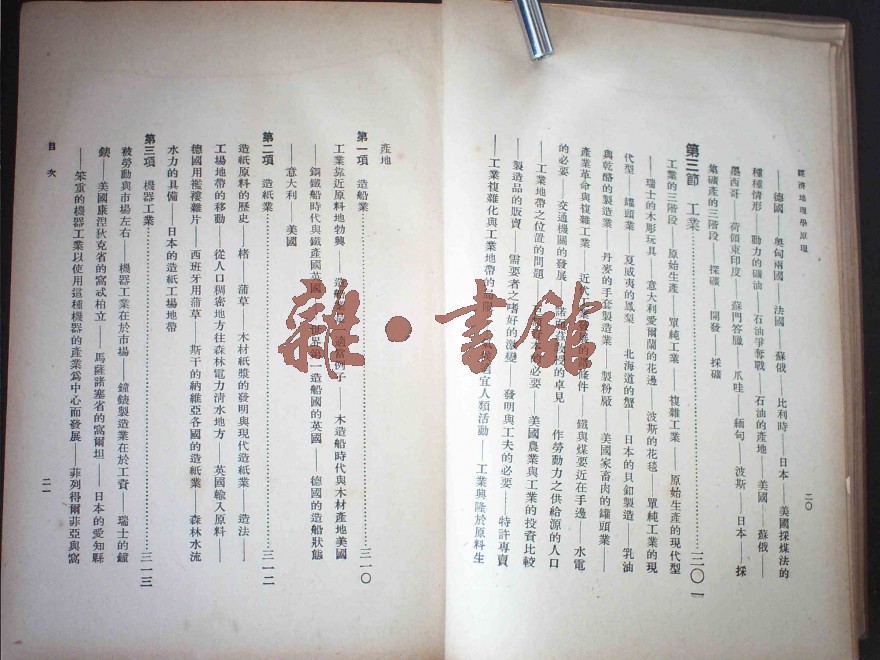 經濟地理學原理
二〇
——德國——奧匈兩國——法國——蘇俄——比利時——日本——美國採煤法的
種種情形——動力的礦油——石油爭奪戰——石油的產地——美國——蘇俄——
墨西哥——荷領東印度——蘇門答臘——爪哇——緬甸——波斯——日本——採
集礦產的三階段——採礦——開發——採礦
第三節 工業……三〇一
工業的三階段——原始生產——單純工業——複雜工業——原始生產的現代型
——瑞士的木彫玩具——意大利愛爾蘭的花邊——波斯的花毯——單純工業的現
代型——罐頭業——夏威夷的鳳梨——北海道的蟹——日本的貝釦製造——乳油
與乾酪的製造業——丹麥的手套製造業——製粉廠——美國家畜肉的罐頭業——
產業革命與複雜工業——近代工業發展的諸條件——鐵與煤要近在手邊——水電
的必要——交通機關的發展——諾而在教授的卓見——作勞動力之供給源的人口
——工業地帶之位置的問題——巨額資本的必要——美國農業與工業的投資比較
——製造品的販賣——需要者之嗜好的激變——發明與工夫的必要——特許專賣
——工業複雜化與工業地帶的 宜人類活動——工業興隆於原料生
產地
第一項 造船業……三一〇
工業靠近原料地勃興——造船業便一適當例子——木造船時代與木材產地美國
——鋼鐵船時代與鐵產國英國——世界第一造船國的英國——德國的造船狀態
——意大利——美國
第二項 造紙業……三一二
造紙原料的歷史——楮——蒲草——木材紙漿的發明與現代造紙業——造法——
工場地帶的移動——從人口稠密地方往森林電力清水地方——英國輸入原料——
德國用襤褸雜片——西班牙用蒲草——斯干的納維亞各國的造紙業——森林水流
水力的具備——日本的造紙工場地帶
第三項 機器工業……三一三
被勞動與市場左右——機器工業在於市場——鐘錶製造業在於工資——瑞士的鐘
錶——美國康涅狄克省的窩忒柏立——馬薩諸塞省的窩爾坦——日本的愛知縣
——笨重的機器工業以使用這種機器的產業爲中心而發展——菲列得爾菲亞與窩
目次
二一
雜·書館